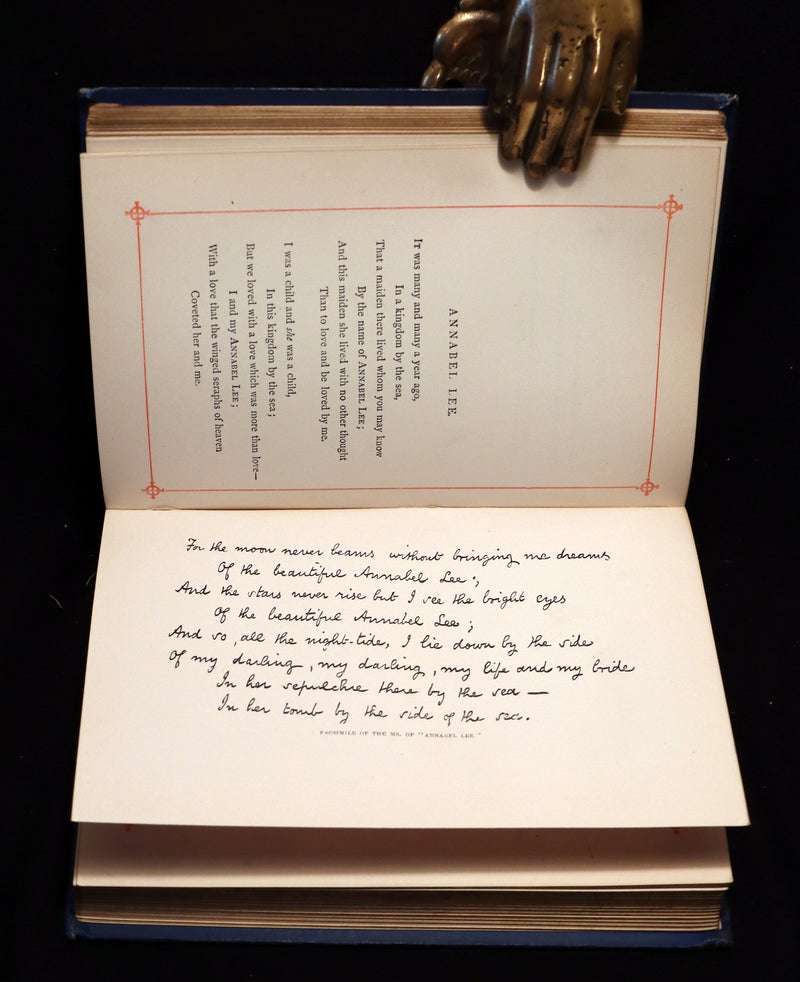 ANNABEL LEE.
IT was many and many a year ago,
In a kingdom by the sea,
That a maiden there lived whom you may know
By the name of ANNABEL LEE;
And this maiden she lived with no other thought
Than to love and be loved by me.
I was a child and she was a child,
In this kingdom by the sea;
But we loved with a love which was more than love—
I and my ANNABEL LEE;
With a love that the winged seraphs of heaven
Coveted her and me.
For the moon never beams without bringing me dreams
Of the beautiful Annabel Lee;
And the stars never rise but I see the bright eyes
Of the beautiful Annabel Lee;
And so, all the night-tide, I lie down by the side
Of my darling, my darling, my life and my bride
In her sepulchre there by the sea —
In her tomb by the side of the sea.
FACSIMILE OF THE MS. OF "ANNABEL LEE."